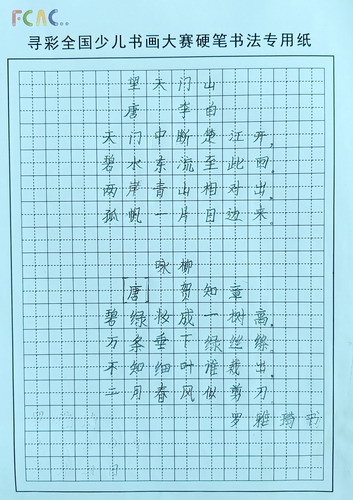 FCAC
寻彩全国少儿书画大赛硬笔书法专用纸
望天门山
唐 李白
天门中断楚江开。
碧水东流至此回。
两岸青山相对出。
孤帆一片日边来。
咏柳
[唐] 贺知章
碧绿妆成一树高。
万条垂下绿丝绦。
不知细叶谁裁出。
二月春风似剪刀。
罗雅琦书